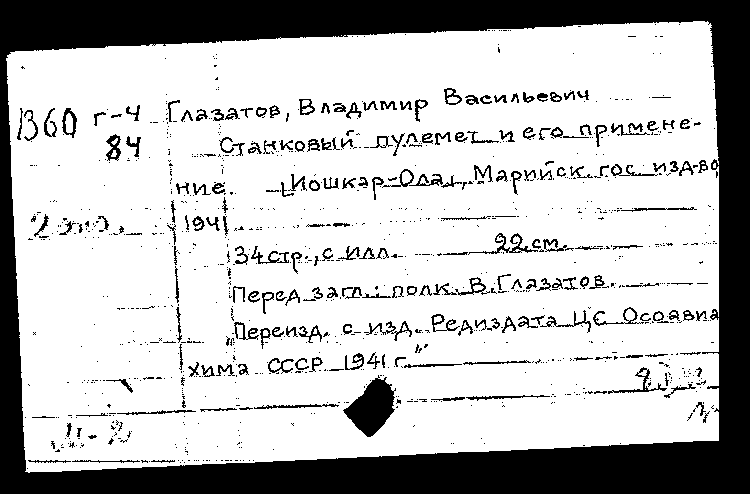 В60 г-4 Глазатов, Владимир Васильевич
84 Станковый пулемет и его примене-
ние. [Йошкар-Ола], Марийск. гос. изд-во
2 экз. 1941.
34 стр., с илл. 22 см.
Перед загл.: полк. В. Глазатов.
"Переизд. с изд. Редиздата ЦС Осоавиа
хима СССР 1941 г."
М-2